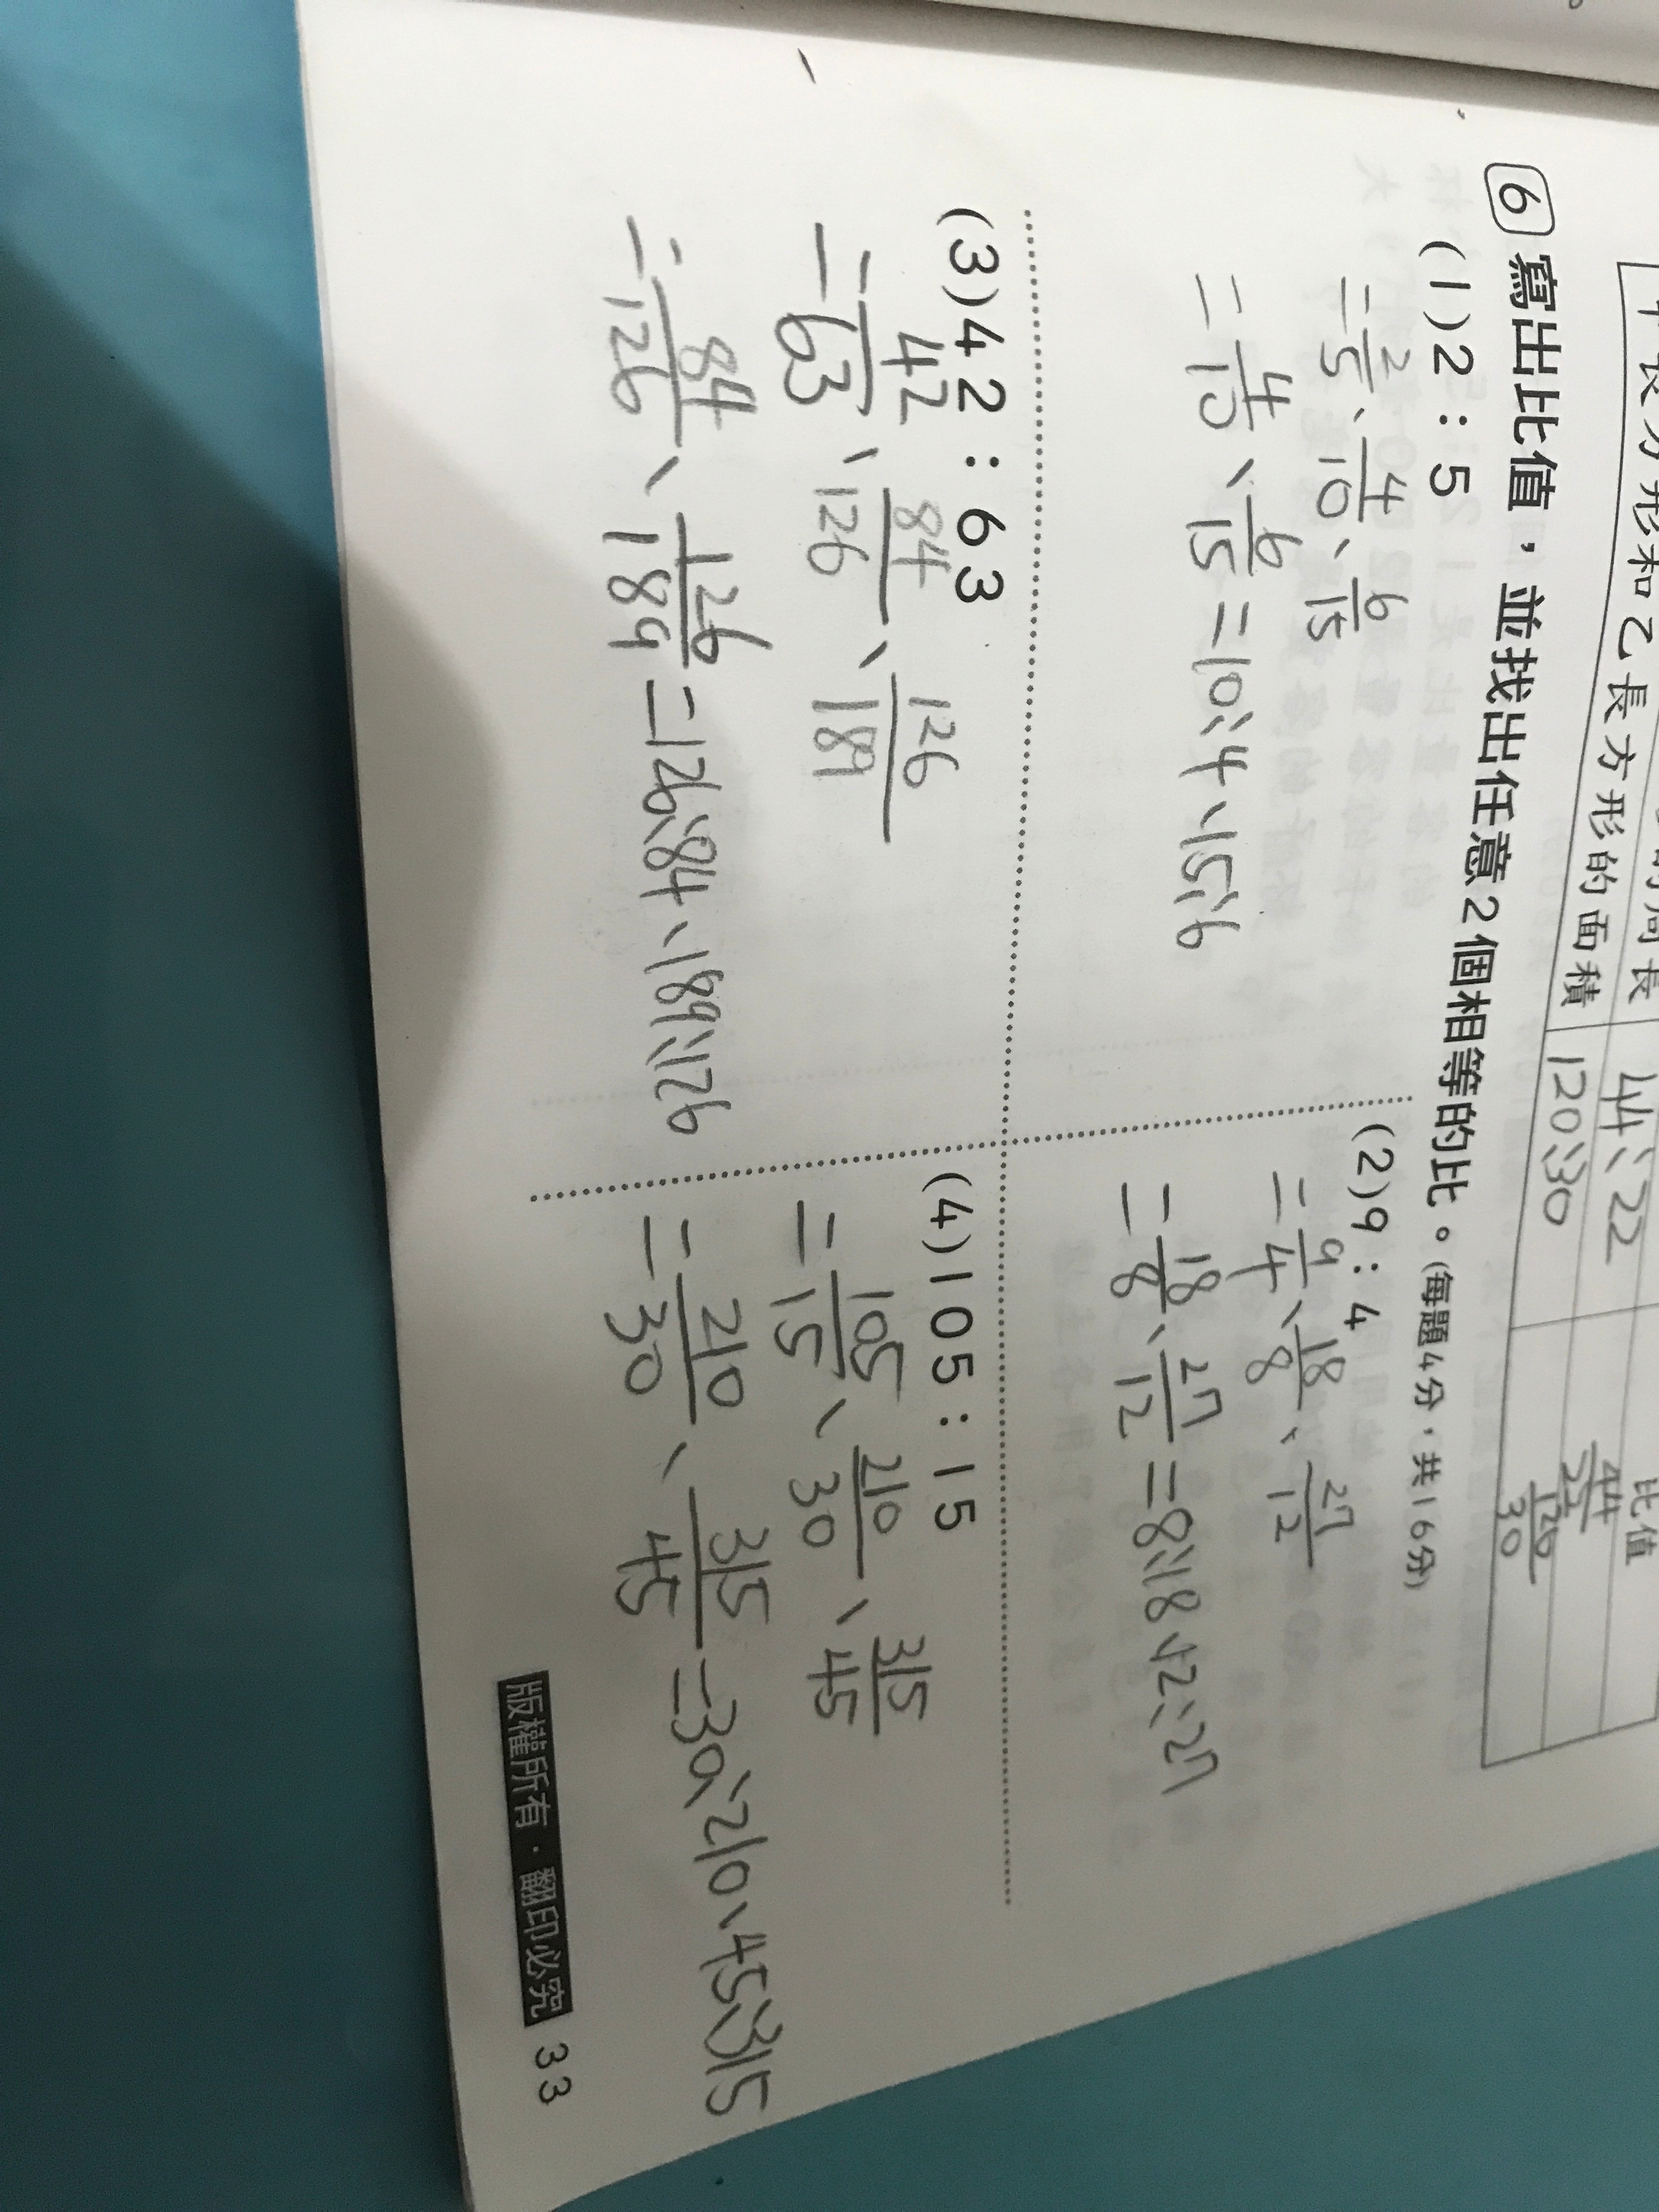 乙長方形的周長 44:22 44/22
甲長方形和乙長方形的面積 120:30 120/30
比值
6 寫出比值，並找出任意2個相等的比。(每題4分，共16分)
(1)2：5
=2/5、4/10、6/15
=4/10、6/15=10:4、15:6
(2)9：4
=9/4、18/8、27/12
=18/8、27/12=8:18、12:27
(3)42：63
=42/63、84/126、126/189
=84/126、126/189=126:84、189:126
(4)105：15
=105/15、210/30、315/45
=210/30、315/45=30:210、45:315
版權所有·翻印必究 33